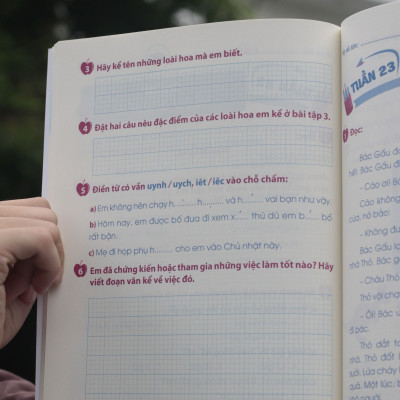 3 Hãy kể tên những loài hoa mà em biết.
4 Đặt hai câu nêu đặc điểm của các loài hoa em kể ở bài tập 3.
5 Điền từ có vần uynh / uych, iêt / iêc vào chỗ chấm:
a) Em không nên chạy h...... h......, và h...... vai bạn như vậy.
b) Hôm nay, em được bố đưa đi xem x...... thú dù em b...... bố
rất bận.
c) Mẹ đi họp phụ h...... cho em vào Chủ nhật này.
6 Em đã chứng kiến hoặc tham gia những việc làm tốt nào? Hãy
viết đoạn văn kể về việc đó.
TUẦN 23
1 Đọc:
Bác Gấu
- Cáo ơi!
Cáo không
cửa, nó bảo:
- Không
Bác Gấu
nhà Thỏ. Bác
- Cháu Thỏ
Thỏ vội
- Ôi! Bác
đi bác.
Thỏ dắt
nhà. Thỏ đốt
sưởi. Lửa cháy
quá. Một lúc,